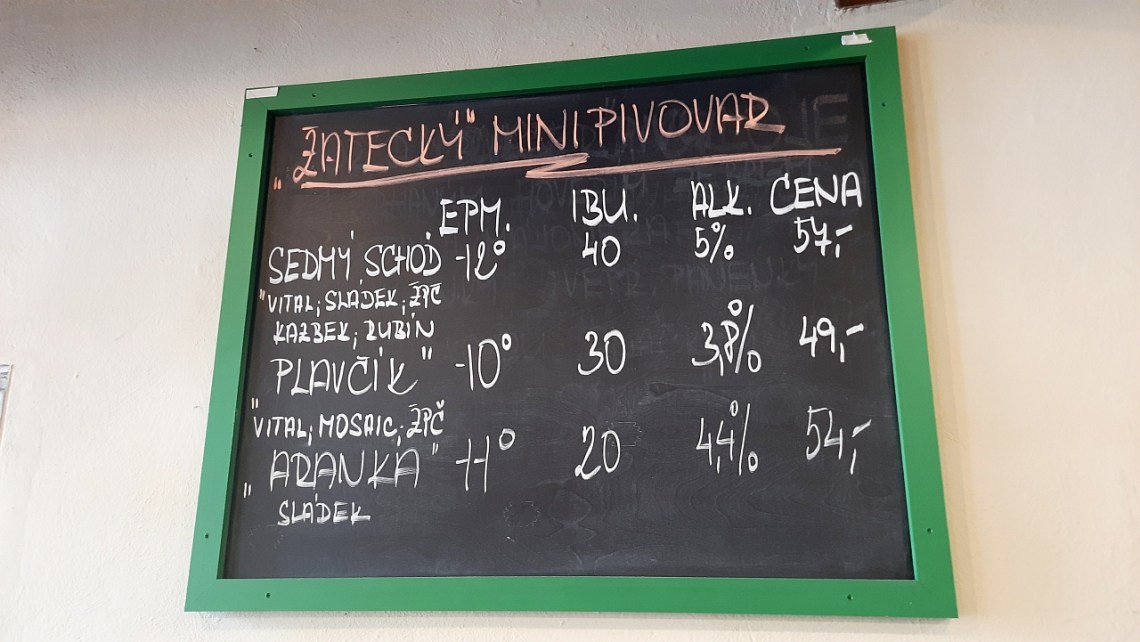 „ŽATECKÝ" MINIPIVOVAR
EPM. IBU. ALK. CENA
SEDMÝ SCHOD -12° 40 5% 57,-
"VITAL; SLÁDEK; ŽPČ
KAZBEK; RUBÍN
PLAVČÍK" -10° 30 3,8% 49,-
"VITAL; MOSAIC; ŽPČ
"ARANKA" -11° 20 4,4% 54,-
SLÁDEK